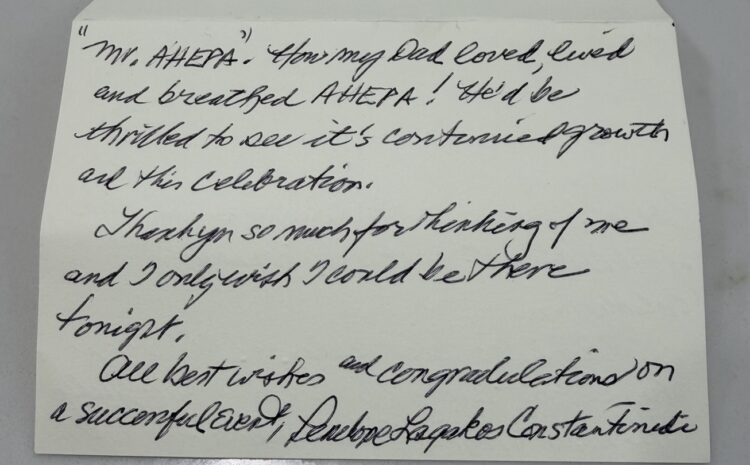 "Mr. AHEPA". How my Dad loved, lived
and breathed AHEPA! He'd be
thrilled to see it's continued growth
and this celebration.
Thank you so much for thinking of me
and I only wish I could be there
tonight.
All best wishes and congradulations on
a successful event, Penelope Lagakos Constantinide